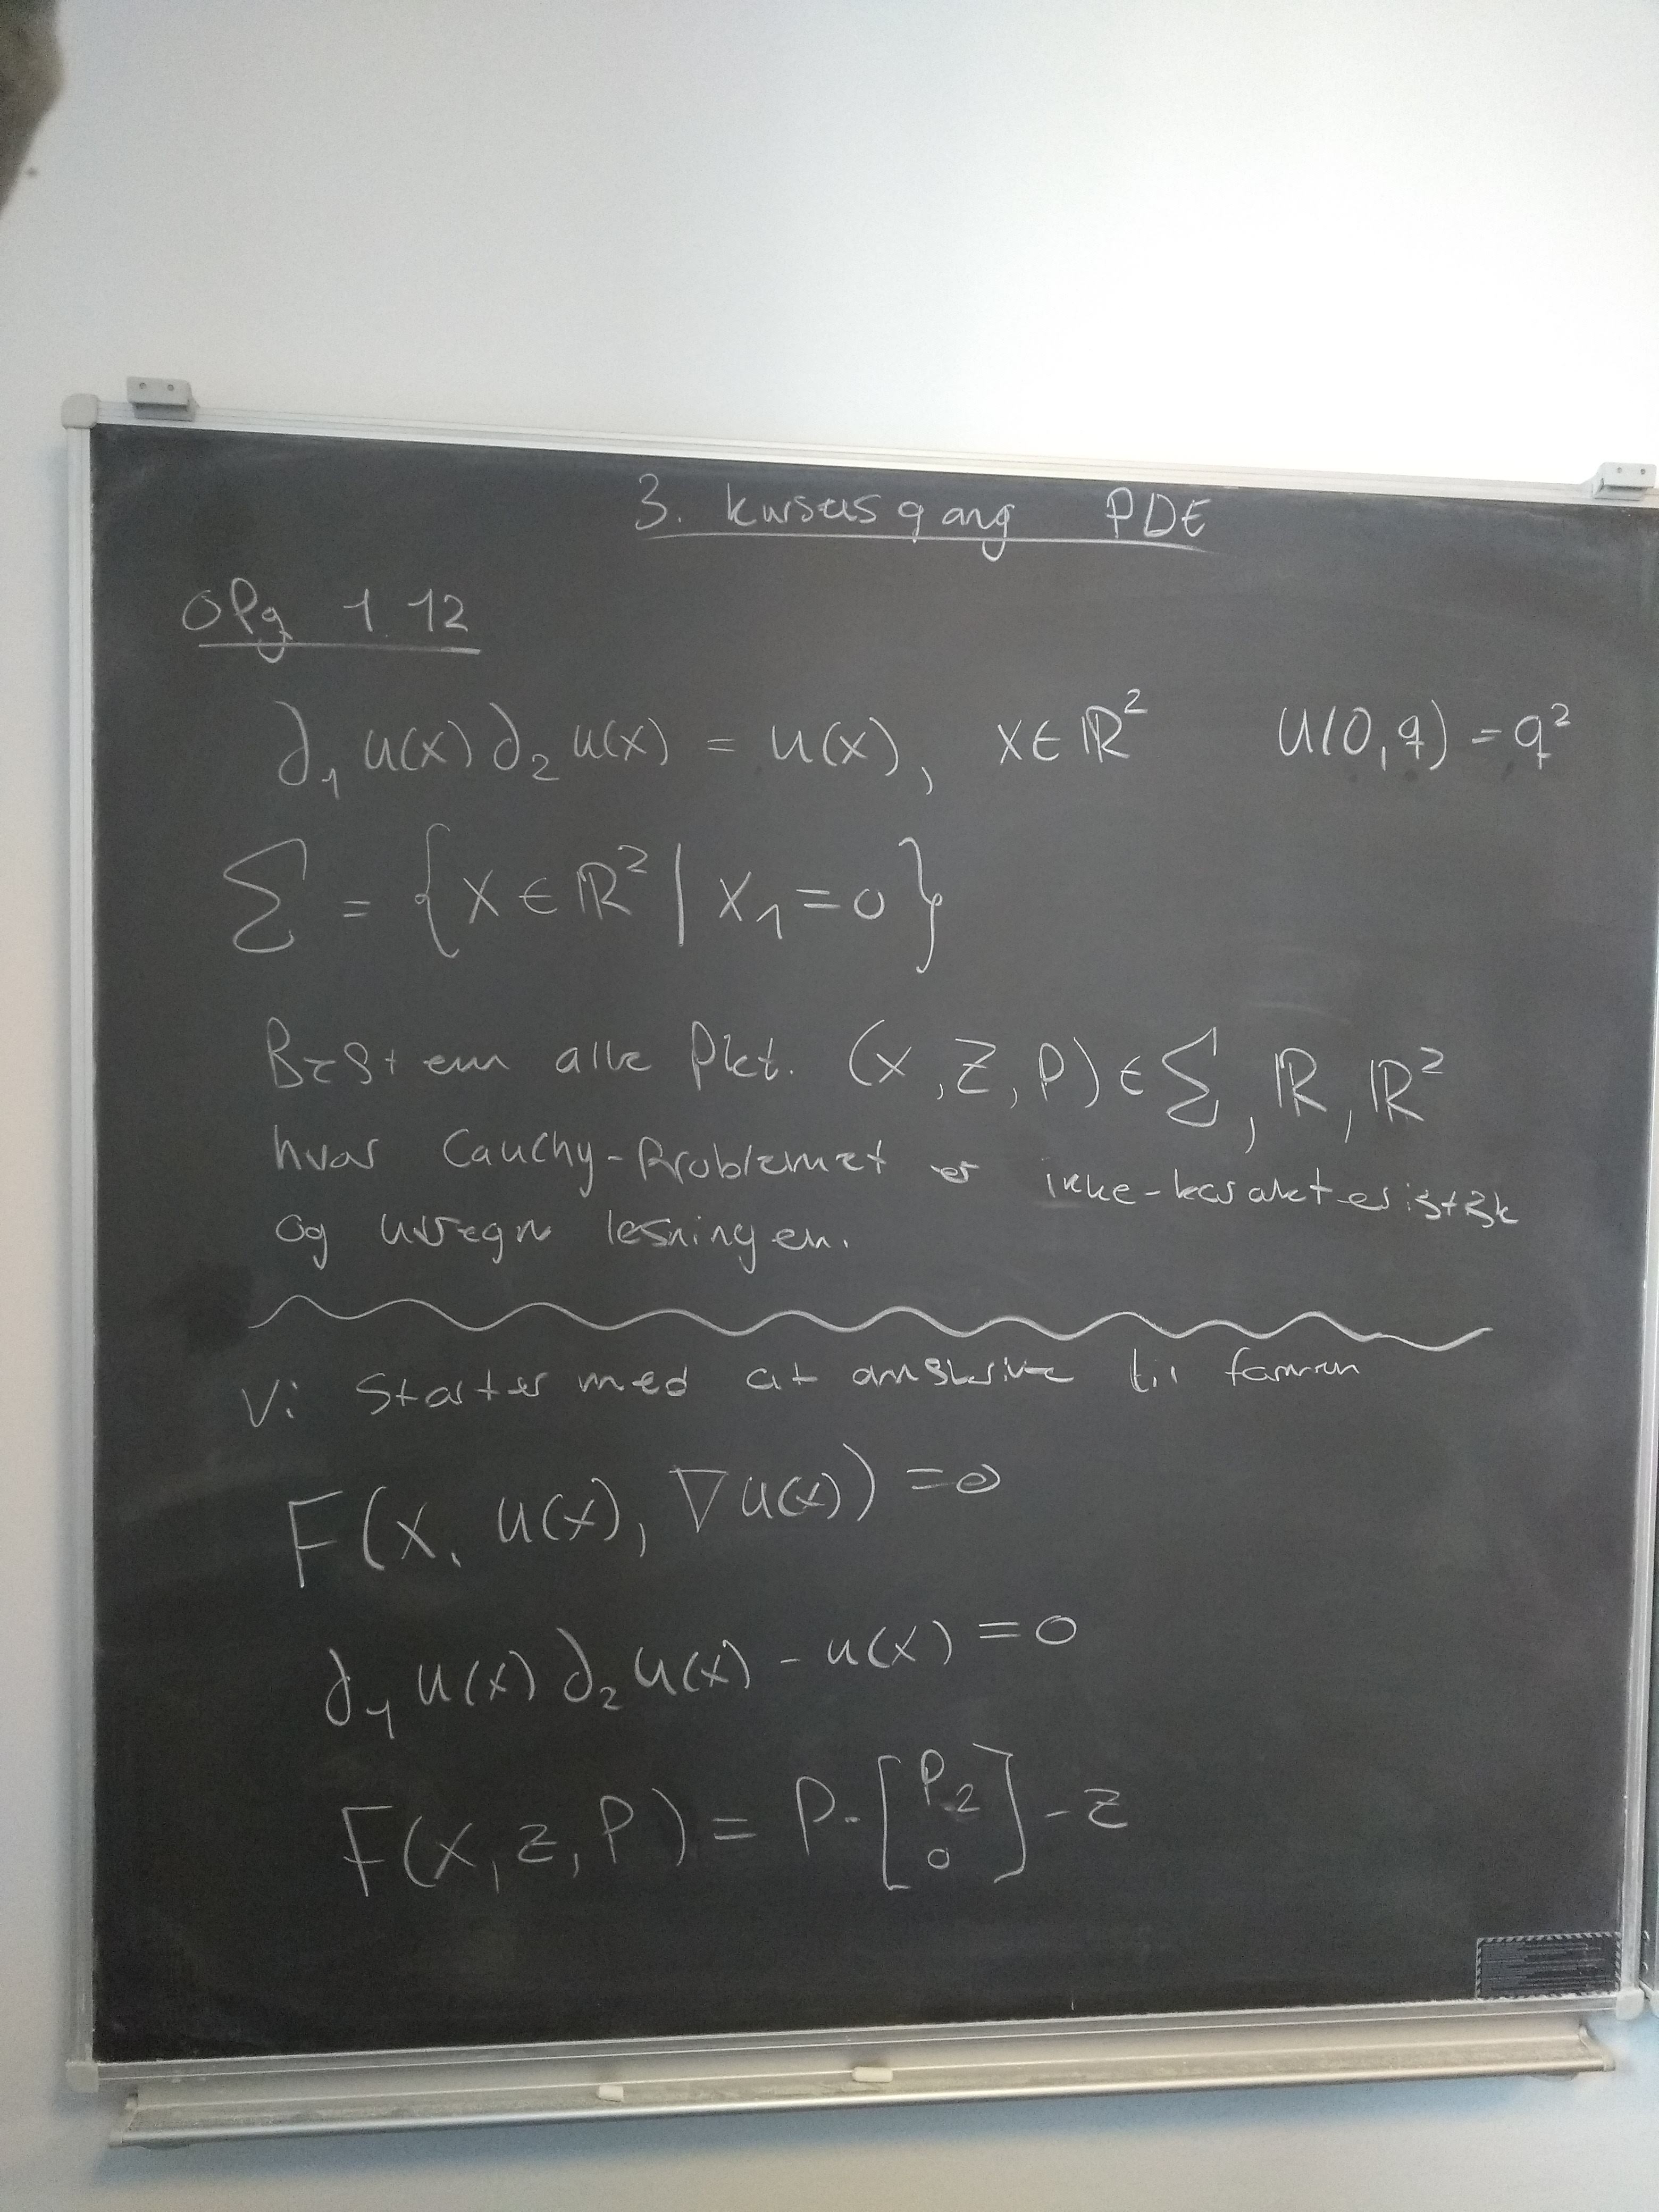 3. kursusgang PDE
Opg 1.12
∂₁ u(x) ∂₂ u(x) = u(x), x ∈ ℝ² u(0,q) = q²
Σ = {x ∈ ℝ² | x₁ = 0}
Bestem alle Pkt. (x, z, p) ∈ Σ, ℝ, ℝ²
hvor Cauchy-Problemet er ikke-karakteristisk
og udregn løsningen.
Vi starter med at omskrive til formen
F(x, u(x), ∇u(x)) = 0
∂₁ u(x) ∂₂ u(x) - u(x) = 0
F(x, z, P) = P · [P₂ 0] - z